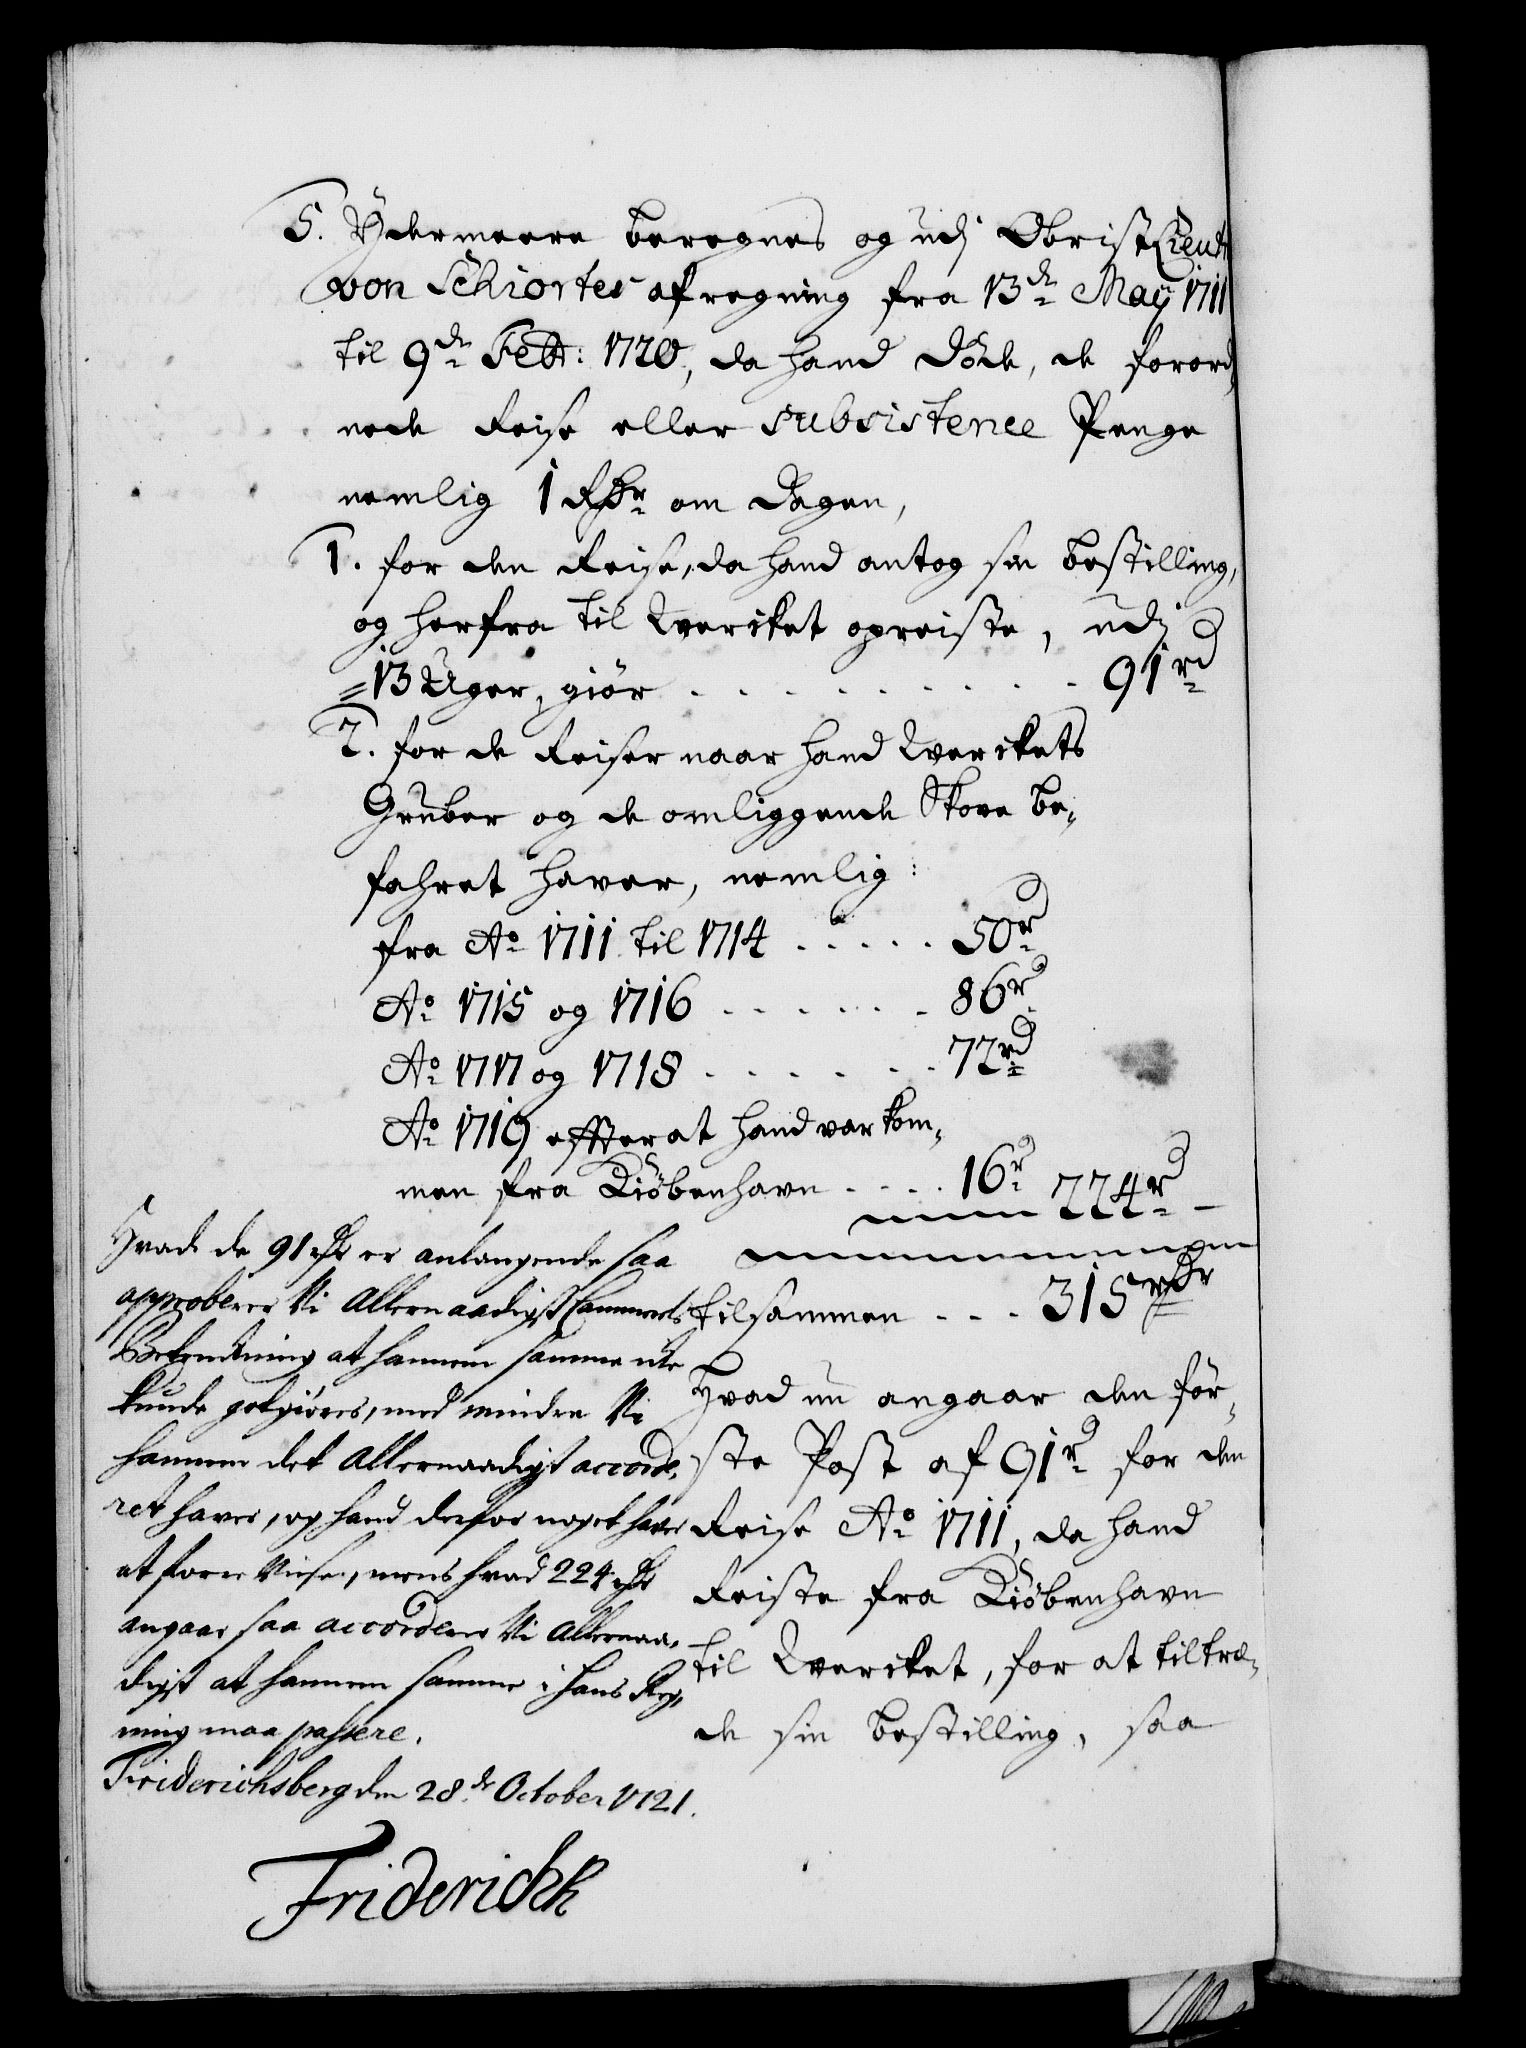 5. Ydermeere beregnes og udj Obrist Lieut
von Schiortes afregning fra 13de May 1711
til 9de Febr: 1720, da hand döde, de forord,
nede Reise eller subsistence Penge
nemlig 1 Rdr om dagen,
1. for den Reise, da hand antog sin bestilling,
og herfra til Wercket opreiste, udj
13 Uger, giör . . . . . . . . 91rd
2. for de Reiser naar hand Werckets
Gruber og de omliggende Skove be,
fahret haver, nemlig:
fra Ao 1711 til 1714 . . . . . 50rd
Ao 1715 og 1716 . . . . . . 86rd
Ao 1717 og 1718 . . . . . . 72rd
Ao 1719 effter at hand var kom,
men fra Kiöbenhavn . . . . 16rd 224rd
tilsammen . . . 315rdr
Hvad nu angaar den för,
ste Post af 91rd for den
Reise Ao 1711, da hand
Reiste fra Kiöbenhavn
til Wercket, for at tiltræ,
de sin bestilling, saa
Hvad de 91 rdr er anlangende saa
approberer Vi Allernaadigst Cammerets
Betenckning at hannem samme icke
kunde godgiöres, med mindre Vi
hannem det Allernaadigst accorde,
ret haver, og hand derfor noget haver
at foreviise, mens hvad 224 rdr
angaar saa accorderer Vi Allernaa,
digst at hannem samme i hans Reg,
ning maa passere.
Friderichsberg den 28de October 1721.
Friderich R